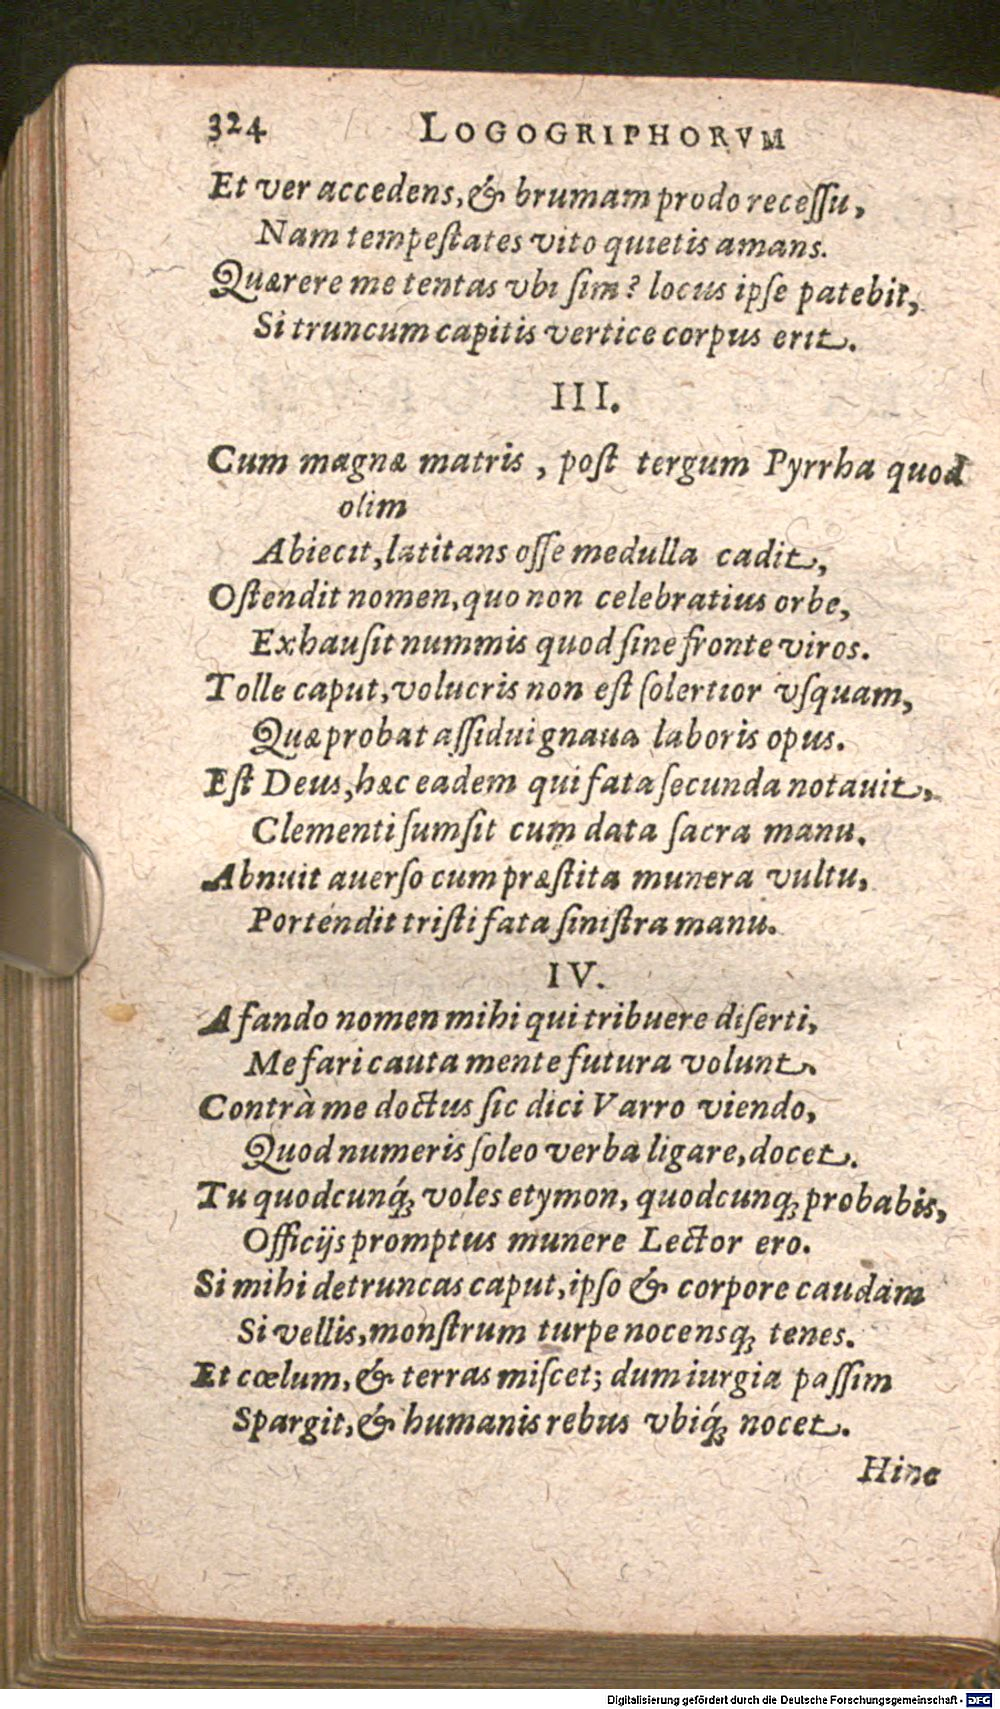 324 LOGOGRIPHORVM
Et ver accedens, & brumam prodo recessu,
Nam tempestates vito quietis amans.
Quærere me tentas vbi sim? locus ipse patebit,
Si truncum capitis vertice corpus erit.
III.
Cum magnæ matris, post tergum Pyrrha quod
olim
Abiecit, latitans osse medulla cadit,
Ostendit nomen, quo non celebratius orbe,
Exhausit nummis quod sine fronte viros.
Tolle caput, volucris non est solertior vsquam,
Quæ probat assidui gnaua laboris opus.
Est Deus, hæc eadem qui fata secunda notauit,
Clementi sumsit cum data sacra manu.
Abnuit auerso cum præstita munera vultu,
Portendit tristi fata sinistra manu.
IV.
A fando nomen mihi qui tribuere diserti,
Me fari cauta mente futura volunt.
Contrà me doctus sic dici Varro viendo,
Quod numeris soleo verba ligare, docet.
Tu quodcunq́; voles etymon, quodcunq; probabis,
Officijs promptus munere Lector ero.
Si mihi detruncas caput, ipso & corpore caudam
Si vellis, monstrum turpe nocensq; tenes.
Et cœlum, & terras miscet; dum iurgia passim
Spargit, & humanis rebus vbiq́; nocet.
Hinc
Digitalisierung gefördert durch die Deutsche Forschungsgemeinschaft - DFG